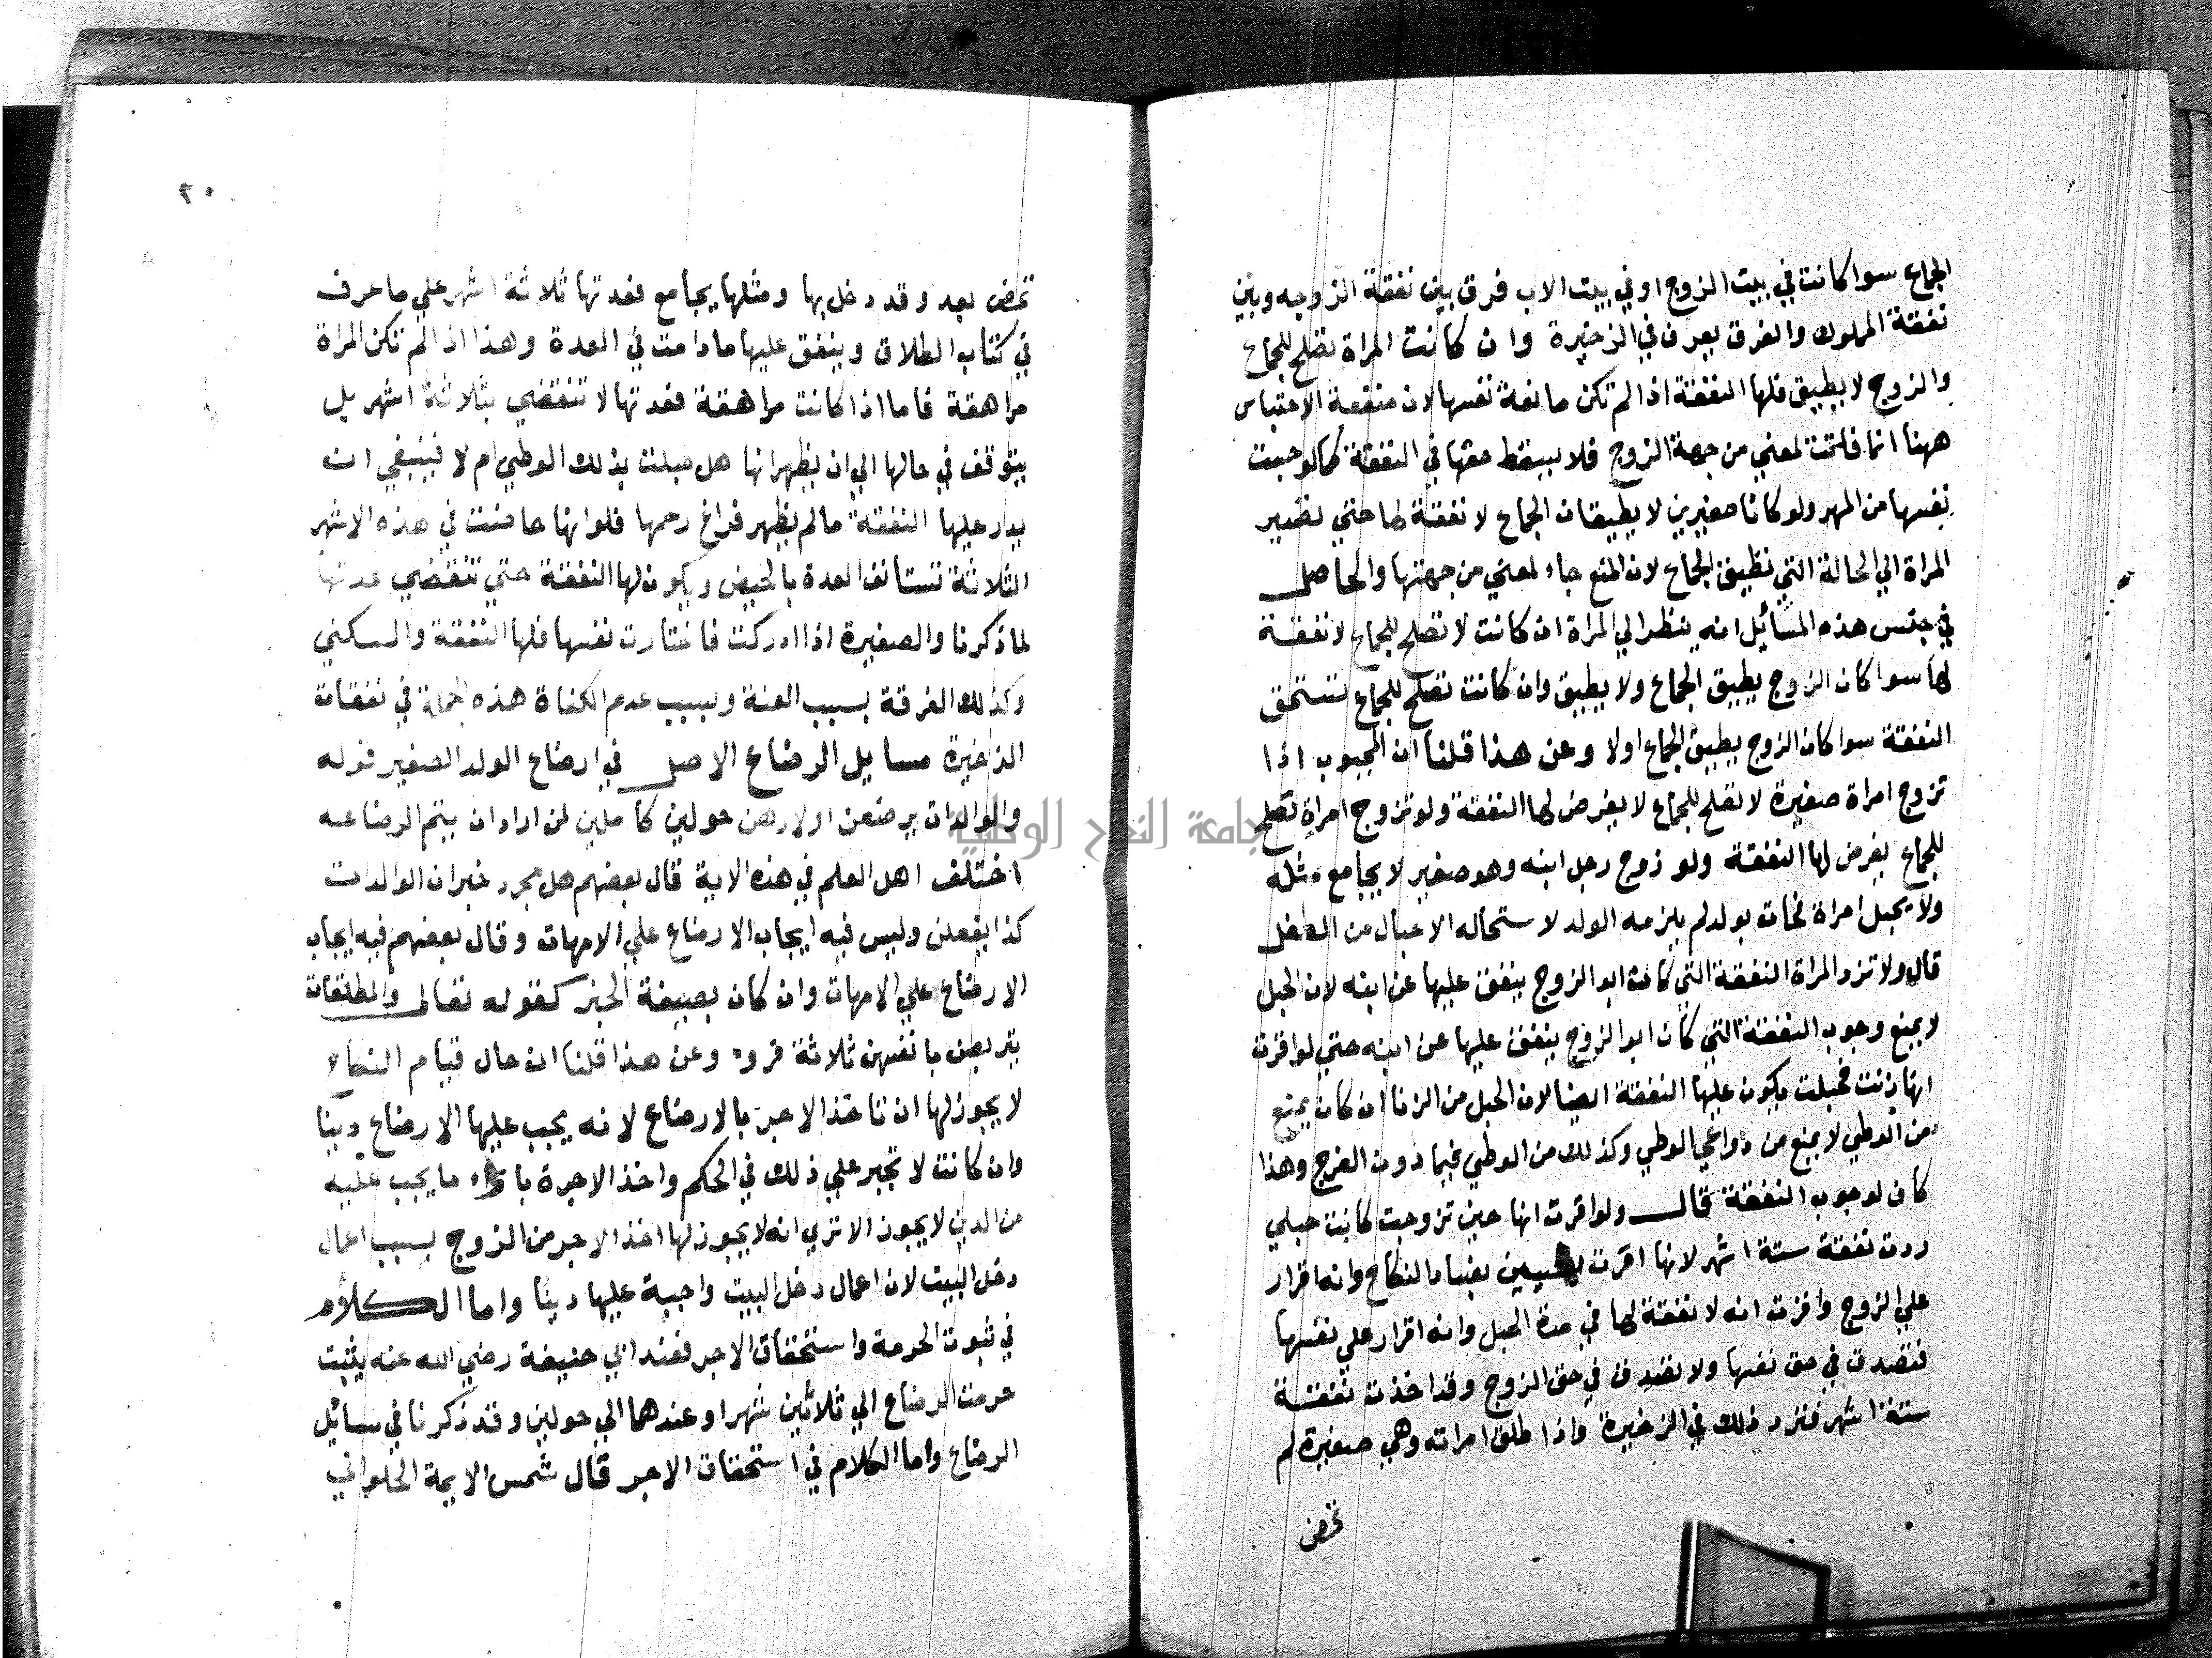 الجماع سوا كانت في بيت الزوج او في بيت الاب فرق بين نفقة الزوجه وبين
نفقة المملوك والفرق يعرف في الزخيرة وان كانت المراة تصلح للجماع
والزوج لا يطيق فلها النفقة اذا لم تكن مانعة نفسها لان منفعة الاحتباس
ههنا انما فاتت لمعني من جهة الزوج فلا يسقط حقها في النفقة كما لو حبست
نفسها من المهر ولو كانا صغيرين لا يطيقان الجماع لا نفقة لها حتي تصير
المراة الي الحالة التي تطيق الجماع لان المنع جاء لمعني من جهتها والحاصل
في جنس هذه المسائل انه ينظر الي المراة ان كانت لا تصلح للجماع لا نفقة
لها سوا كان الزوج يطيق الجماع ولا يطيق وان كانت تصلح للجماع تستحق
النفقة سوا كان الزوج يطيق الجماع اولا وعن هذا قلنا ان المجبوب اذا
تزوج امراة صغيرة لا تصلح للجماع لا يفرض لها النفقة ولو تزوج امراة تصلح
للجماع يفرض لها النفقة ولو زوج رجل ابنه وهو صغير لا يجامع مثله
ولا يحبل امراة فجات بولد لم يلزمه الولد لاستحاله الاحبال من الطفل
قال ولا ترد المراة النفقة التي كانت ابو الزوج ينفق عليها عن ابنه لان الحبل
لا يمنع وجوب النفقة التي كان ابو الزوج ينفق عليها عن ابنه حتي لو اقرت
انها زنت فحبلت يكون عليها النفقة ايضا لان الحبل من الزنا ان كان يمنع
من الوطي لا يمنع من دواعي الوطي وكذلك من الوطي فيما دون الفرج وهذا
كاف لوجوب النفقة قال ولو اقرت انها حين تزوجت كانت حبلي
ردت نفقة ستة اشهر لانها اقرت بفساد النكاح وانه اقرار
علي الزوج واقرت انه لا نفقة لها في مدة الحبل وانه اقرار علي نفسها
فتصدق في حق نفسها ولا تصدق في حق الزوج وقد اخذت نفقة
ستة اشهر فترد ذلك في الزخيرة واذا طلق امراته وهي صغيرة لم
تحض
٢٠
تحض بعد وقد دخل بها ومثلها يجامع فعدتها ثلاثة اشهر علي ما عرف
في كتاب الطلاق وينفق عليها ما دامت في العدة وهذا اذا لم تكن المراة
مراهقة فاما اذا كانت مراهقة فعدتها لا تنقضي بثلاثة اشهر بل
يتوقف في حالها الي ان يظهر انها هل حبلت بذلك الوطي ام لا فينبغي ان
يدر عليها النفقة ما لم يظهر فراغ رحمها فلو انها حاضت في هذه الاشهر
الثلاثة تستانف العدة بالحيض ويكون لها النفقة حتي تنقضي عدتها
لما ذكرنا والصغيرة اذا ادركت فاختارت نفسها فلها النفقة والسكني
وكذلك الفرقة بسبب العنة وبسبب عدم الكفاة هذه الجملة في نفقات
الذخيرة مسايل الرضاع الاصل في ارضاع الولد الصغير قوله
والوالدات يرضعن اولادهن حولين كاملين لمن اراد ان يتم الرضاعه
اختلف اهل العلم في هذه الاية قال بعضهم هل مجرد خبر ان الوالدات
كذا يفعلن وليس فيه ايجاب الارضاع علي الامهات وقال بعضهم فيه ايجاب
الارضاع علي الامهات وان كان بصيغة الخبر كقوله تعالى والمطلقات
يتربصن بانفسهن ثلاثة قروء وعن هذا قلنا ان حال قيام النكاح
لا يجوز لها ان تاخذ الاجر بالارضاع لانه يجب عليها الارضاع دينا
وان كانت لا تجبر علي ذلك في الحكم واخذ الاجرة بازاء ما يجب عليه
من الدين لا يجوز الا تري انه لا يجوز لها اخذ الاجر من الزوج بسبب اعمال
دخل البيت لان اعمال دخل البيت واجبة عليها دينا واما الكلام
في ثبوت الحرمة واستحقاق الاجر فعند ابي حنيفة رضي الله عنه يثبت
حرمت الرضاع الي ثلاثين شهرا وعندهما الي حولين وقد ذكرنا في مسائل
الرضاع واما الكلام في استحقاق الاجر قال شمس الايمة الحلواني
جامعة النجاح الوطنية